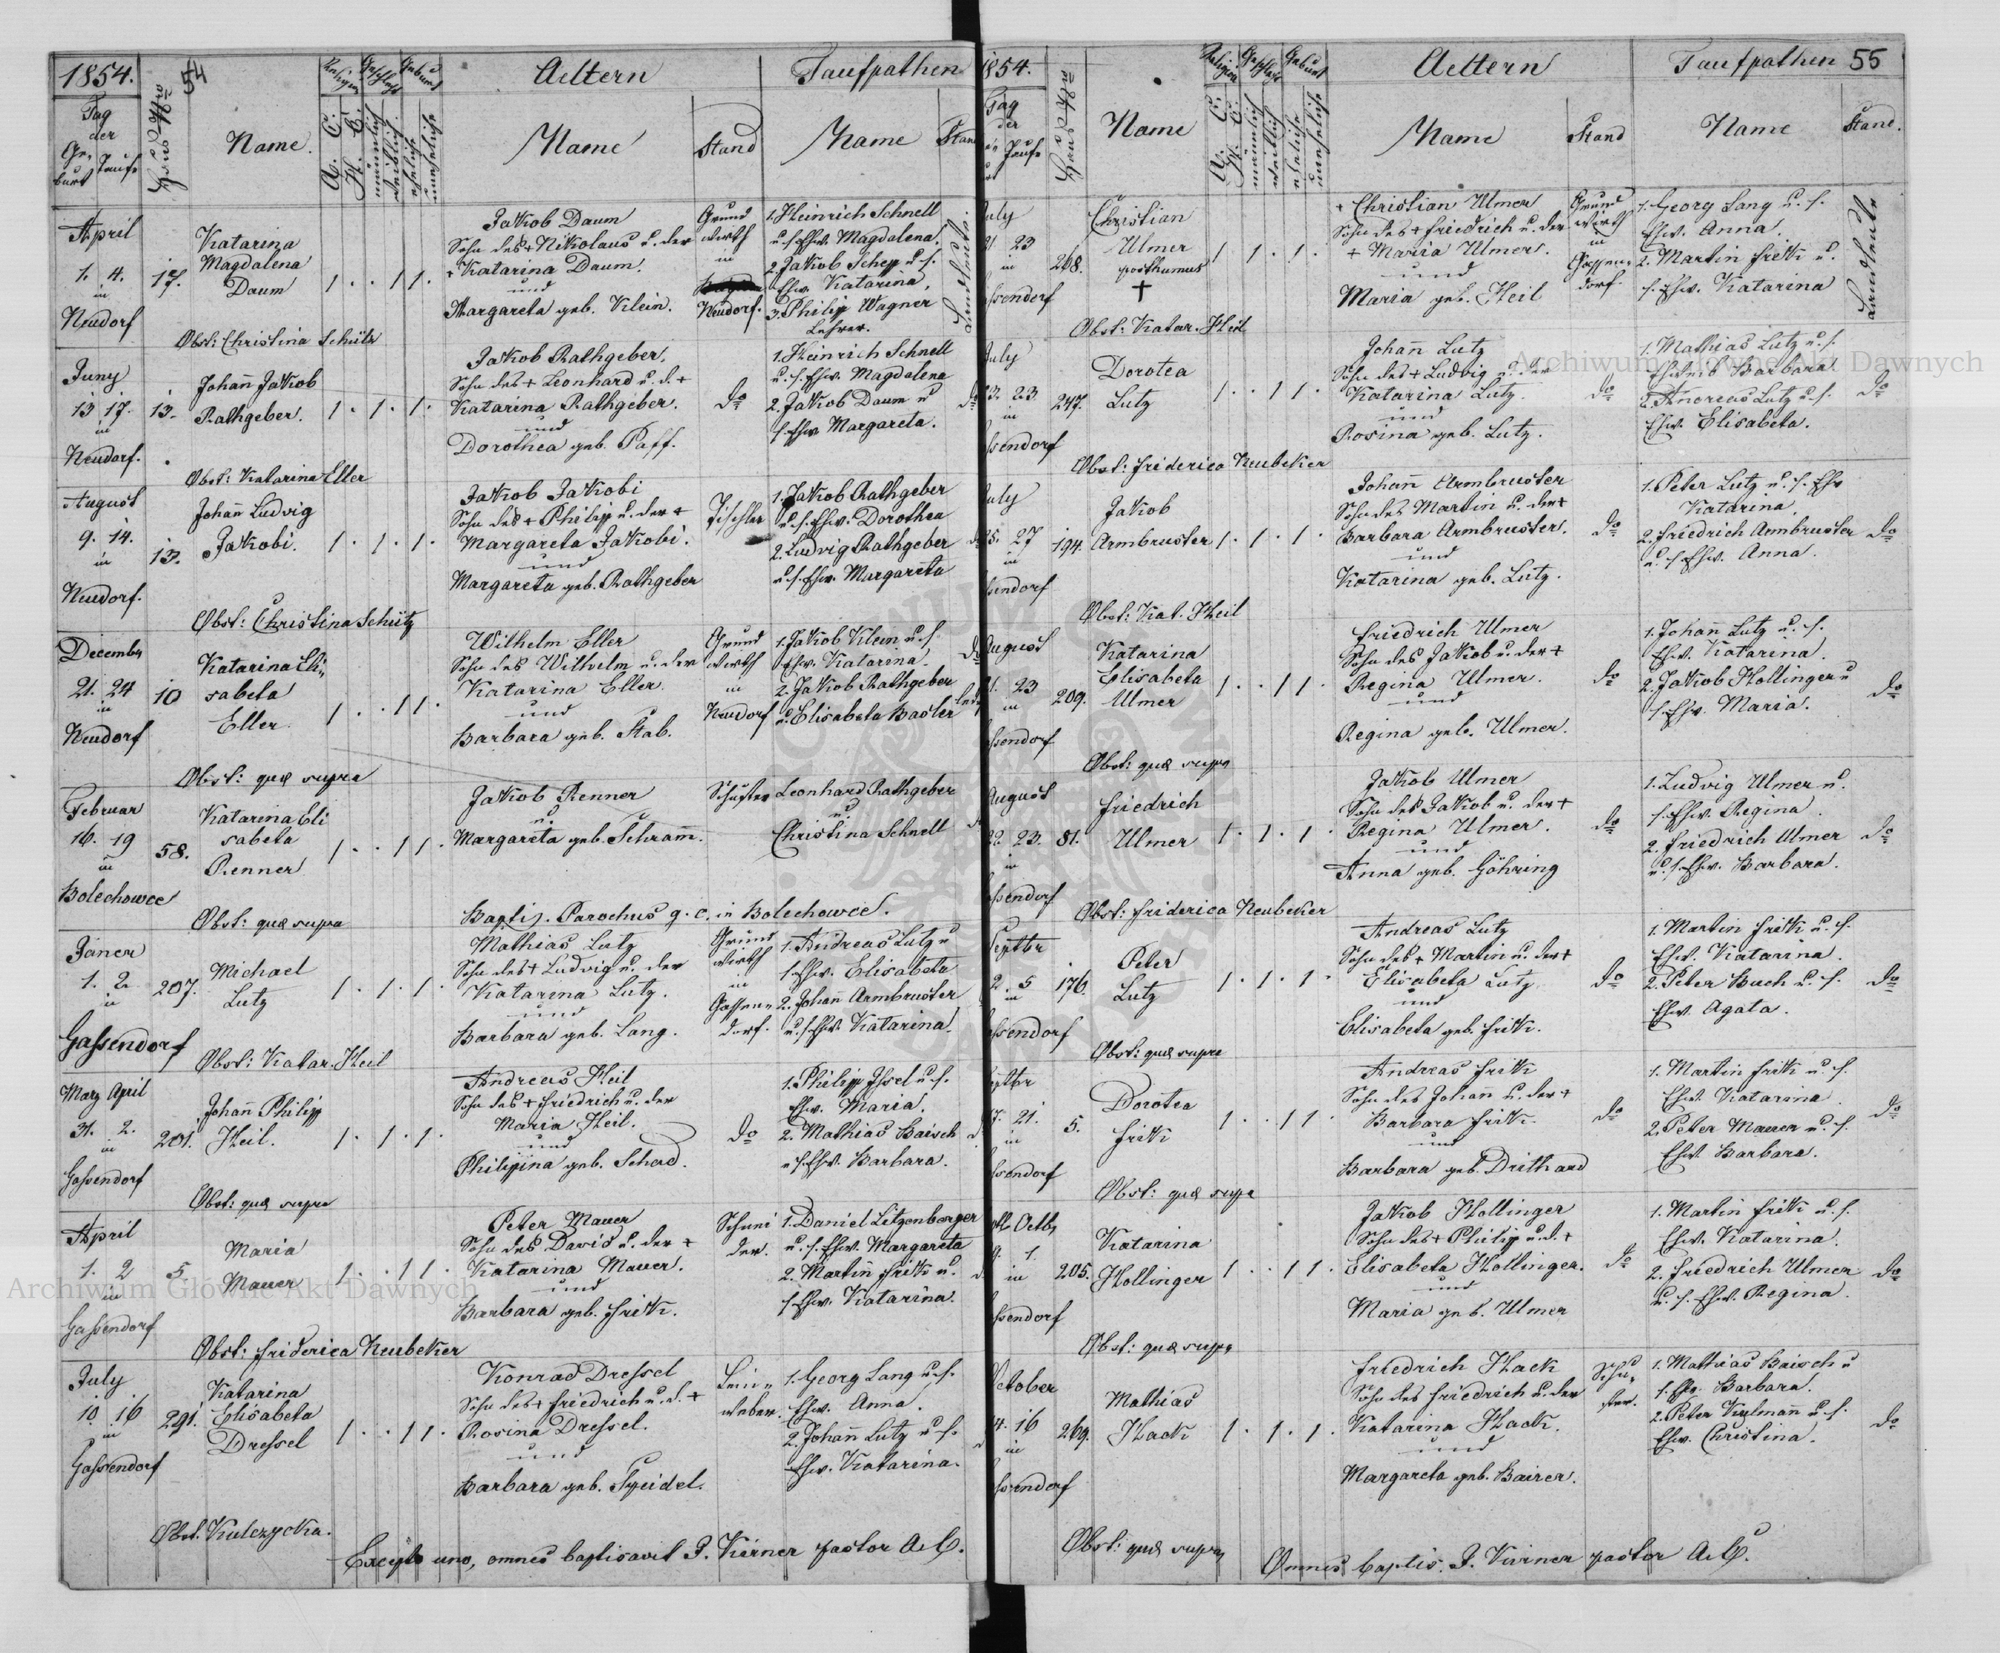 1854.
54
Religion
Geschlecht
Geburt
Aeltern
Taufpathen
Tag der
Geburt
Taufe
Haus Nro
Name.
A. C.
H. C.
männlich
weiblich
eheliche
uneheliche
Name
Stand
Name
Stand
April
1. 4.
in
Neudorf
17.
Katarina
Magdalena
Daum
1 . . 1 1 .
Jakob Daum
Sohn des + Nikolaus u. der
+ Katarina Daum.
und
Margareta geb. Klein.
Grund
wirth
in
Neudorf.
1. Heinrich Schnell
u. s. Ehw. Magdalena.
2. Jakob Schep u. s.
Ehw. Katarina,
3. Philip Wagner
Lehrer.
Landleute.
Obst: Christina Schütz
Juny
13 17.
in
Neudorf.
13.
Johañ Jakob
Rathgeber.
1 . 1 . 1 .
Jakob Rathgeber.
Sohn des + Leonhard u. d. +
Katarina Rathgeber.
und
Dorothea geb. Paff.
do
1. Heinrich Schnell
u. s. Ehw. Magdalena
2. Jakob Daum u
s. Ehw Margareta.
do
Obst: Katarina Eller
August
9. 14.
in
Neudorf.
13.
Johañ Ludvig
Jakobi.
1 . 1 . 1 .
Jakob Jakobi
Sohn des + Philip u. der +
Margareta Jakobi.
und
Margareta geb. Rathgeber
Tischler
1. Jakob Rathgeber
u. s. Ehw. Dorothea
2. Ludvig Rathgeber
u. s. Ehw. Margareta
Obst: Christina Schütz
December
21. 24
in
Neudorf
10
Katarina Eli=
sabeta
Eller
1 . . 1 1 .
Wilhelm Eller
Sohn des Wilhelm u. der
Katarina Eller.
und
Barbara geb. Stab.
Grund
wirth
in
Neudorf
1. Jakob Klein u. s.
Ehw. Katarina.
2. Jakob Rathgeber
u Elisabeta Basler
Obst: quæ supra
Februar
16. 19
in
Bolechowce
58.
Katarina Eli
sabeta
Renner
1 . . 1 1 .
Jakob Renner
u.
Margareta geb. Schram̃.
Schuster
Leonhard Rathgeber
u.
Christina Schnell
Obst: quæ supra
Baptis. Parochus g. c. in Bolechowce.
Jäner
1. 2.
in
Gassendorf
207.
Michael
Lutz
1 . 1 . 1 .
Mathias Lutz
Sohn des + Ludvig u. der
Katarina Lutz.
und
Barbara geb. Lang.
Grund
wirth
in
Gassen=
dorf.
1. Andreas Lutz u
s. Ehw. Elisabeta
2. Johañ Armbruster
u. s. Ehw. Katarina.
Obst: Katar. Heil
Marz April
31. 2.
in
Gassendorf
201.
Johañ Philip
Heil.
1 . 1 . 1 .
Andreas Heil
Sohn des + friedrich u. der
Maria Heil.
und
Philippina geb. Schad.
do
1. Philip Issel u. s.
Ehw. Maria.
2. Mathias Baisch
u s. Ehw. Barbara.
Obst: quæ supra
April
1. 2
in
Gassendorf
5.
Maria
Mauer
1 . . 1 1 .
Peter Mauer
Sohn des David u. der +
Katarina Mauer.
und
Barbara geb. fritz.
Schnei
der.
1. Daniel Litzenberger
u. s. Ehw. Margareta
2. Martin fritz u.
s. Ehw. Katarina.
Obst: friderica Neubeker
July
10. 16
in
Gassendorf
291.
Katarina
Elisabeta
Dressel
1 . . 1 1 .
Konrad Dressel
Sohn des + friedrich u. d. +
Rosina Dressel.
und
Barbara geb. Speidel.
Lein=
weber.
1. Georg Lang u. s.
Ehw. Anna.
2. Johañ Lutz u s.
Ehw. Katarina.
Obst. Kulczycka.
Excepto uno, omnes baptisavit P. Kirner pastor A. C.
1854.
Haus Nro
Religion
Geschlecht
Geburt
Aeltern
Taufpathen
55
Tag
der
Taufe
Name
A. C.
H. C.
männlich
weiblich
eheliche
uneheliche
Name
Stand
Name
Stand.
July
21. 23
in
ssendorf
268.
Christian
Ulmer
posthumus
+
1 . 1 . 1 .
+ Christian Ulmer
Sohn des + friedrich u. der
+ Maria Ulmer.
und
Maria geb. Heil
Grund
wirth
in
Gassen=
dorf.
1. Georg Lang u. s.
Ehw. Anna.
2. Martin fritz u.
s. Ehw. Katarina
Landleute
Obst: Katar. Heil
July
23. 23
in
ssendorf
247.
Dorotea
Lutz
1 . . 1 1 .
Johañ Lutz
Sohn des + Ludvig u. der
Katarina Lutz.
und
Rosina geb. Lutz.
do
1. Mathias Lutz u. s.
Eheweib Barbara
2. Andreas Lutz u. s.
Ehw. Elisabeta.
do
Obst: friderica Neubeker
July
25. 27
in
ssendorf
194.
Jakob
Armbruster
1 . 1 . 1 .
Johañ Armbruster
Sohn des Martin u. der +
Barbara Armbruster.
und
Katarina geb. Lutz.
do
1. Peter Lutz u. s. Ehw
Katarina.
2. friedrich Armbruster
u. s. Ehw. Anna.
do
Obst: Kat. Heil
August
21. 23
in
ssendorf
209.
Katarina
Elisabeta
Ulmer
1 . . 1 1 .
friedrich Ulmer
Sohn des Jakob u. der +
Regina Ulmer.
und
Regina geb. Ulmer.
do
1. Johañ Lutz u. s.
Ehw. Katarina.
2. Jakob Hollinger u
s. Ehw. Maria.
do
Obst: quæ supra
August
22. 23.
in
ssendorf
81.
friedrich
Ulmer
1 . 1 . 1 .
Jakob Ulmer
Sohn des Jakob u. der +
Regina Ulmer.
und
Anna geb. Göhring
do
1. Ludvig Ulmer u.
s. Ehw. Regina.
2. friedrich Ulmer
u. s. Ehw. Barbara.
do
Obst: friderica Neubeker
Septbr
2. 5
in
ssendorf
176.
Peter
Lutz
1 . 1 . 1 .
Andreas Lutz
Sohn des + Martin u. der +
Elisabeta Lutz
und
Elisabeta geb. fritz.
do
1. Martin fritz u. s.
Ehw. Katarina.
2. Peter Buch u. s.
Ehw. Agata.
do
Obst: quæ supra
Septbr
17. 21.
in
ssendorf
5.
Dorotea
fritz
1 . . 1 1 .
Andreas fritz
Sohn des Johañ u. der +
Barbara fritz.
und
Barbara geb. Drithard
do
1. Martin fritz u. s.
Ehw. Katarina.
2. Peter Mauer u. s.
Ehw. Barbara.
do
Obst: quæ supr
Octb
1.
in
ssendorf
205.
Katarina
Hollinger
1 . . 1 1 .
Jakob Hollinger
Sohn des + Philip u. d. +
Elisabeta Hollinger.
und
Maria geb. Ulmer
do
1. Martin fritz u. s.
Ehw. Katarina.
2. friedrich Ulmer
u. s. Ehw. Regina.
do
Obst: quæ supra
October
14. 16
in
ssendorf
269.
Mathias
Hack
1 . 1 . 1 .
friedrich Hack
Sohn des friedrich u. der
Katarina Hack.
und
Margareta geb. Bairer.
Schu=
ster.
1. Mathias Baisch u
s. Ehw. Barbara.
2. Peter Kulmañ u. s.
Ehw. Christina.
do
Obst: quæ supra
Omnes baptis. P. Kirner pastor A. C.
Archiwum Główne Akt Dawnych
Archiwum Główne Akt Dawnych